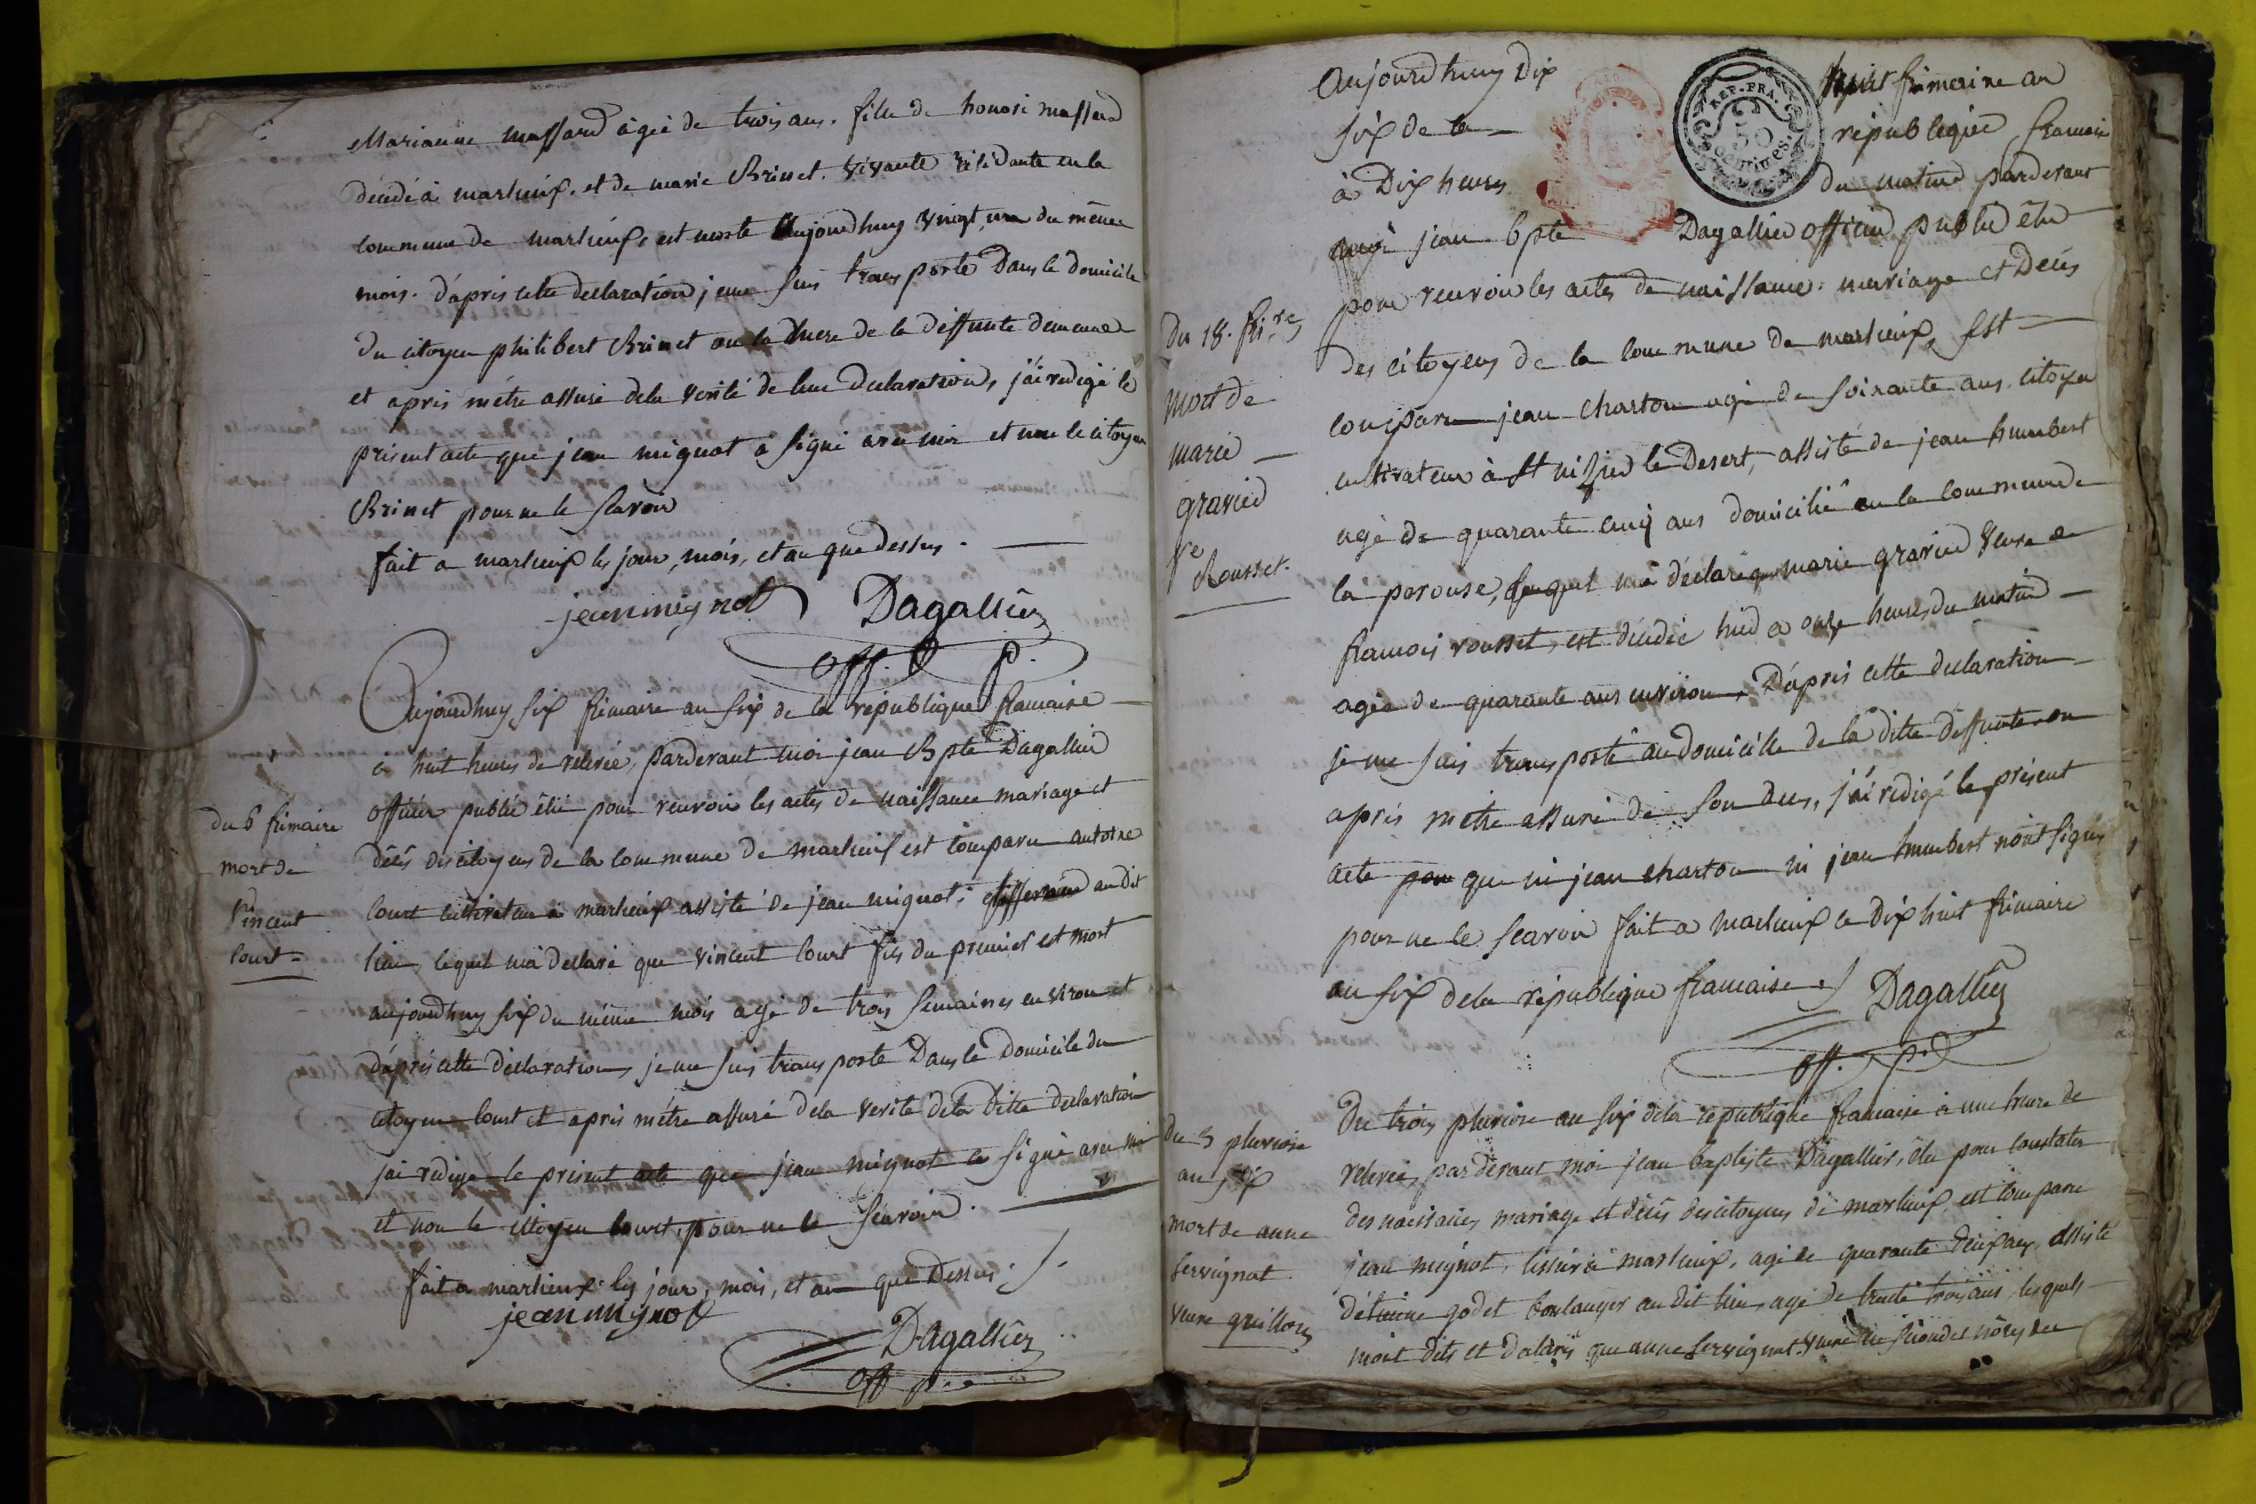 Marianne massard agée de trois ans. fille de honoré massard
décédé à marlieux, et de marie Brinet. vivante résidante en la
commune de marlieux, est morte aujourdhuy vingt un du même
mois. d'après cette declaration je me suis transporté Dans le domicile
du citoyen philibert Brinet ou la mere de la deffunte demeure
et apres m'être assuré dela verité de leur declaration, j'ai redigé le
présent acte que jean mignot a signé avec moi et non le citoyen
Brinet pour ne le scavoir
fait a marlieux les jour, mois, et an que dessus.
jean mignot Dagallier
off. p.
Aujourdhuy six frimaire an six de la république francaise
a huit heures de relevée, pardevant moi jean Bpte Dagallier
officier public élu pour recevoir les actes de naissance mariage et
décès des citoyens de la commune de marlieux est comparu antoine
court cultivateur a marlieux assisté de jean mignot, audit
lieu, lequel m'a declaré que vincent court fils du premier est mort
aujourdhuy six du même mois agé de trois semaines environ et
d'après cette déclaration, je me suis transporté Dans le Domicile du
citoyen court et apres m'être assuré dela verité dela ditte declaration
j'ai redigé le présent acte que jean mignot a signé avec moi
et non le citoyen court, pour ne le scavoir.
fait a marlieux les jour, mois, et an que Dessus.
jean mignot
Dagallier
off. p.
du 6 frimaire
mort de
vincent
court
Aujourdhuy Dix huit frimaire an
six de la république francaise
à Dix heures du matin pardevant
moi jean bpte Dagallier officier public élu
pour recevoir les actes de naissance, mariage et Décès
des citoyens de la commune de marlieux, est
comparu jean charton agé de soixante ans, citoyen
cultivateur à st nizier le Desert, assisté de jean humbert
agé de quarante cinq ans domicilié en la commune de
la perouse, lequel m'a déclaré que marie gravier veuve de
francois rousset, est décedée hier a onze heures du matin
agée de quarante ans environ. D'après cette declaration
je me suis transporté au domicille de la ditte deffunte ou
apres m'être assuré de son deces, j'ai redigé le présent
acte pour que ni jean charton ni jean humbert n'ont signé
pour ne le scavoir fait a marlieux ce dix huit frimaire
an six dela république francaise
Dagallier
off. p.
du 18. fri.re
mort de
marie
gravier
ve
Rousset.
REP. FRA.
50
centimes.
Du trois pluviose an six dela république francaise à une heure de
relevée, pardevant moi jean baptiste Dagallier, élu pour constater
des naissances mariage et décès des citoyens de marlieux, est comparu
jean mignot, tissier à marlieux, agé de quarante deux ans, assisté
d'étienne godet boulanger au dit lieu, agé de trente trois ans, lesquels
m'ont dits et declarés que anne servignat veuve
du 3 pluviose
an six
mort de anne
servignat
veuve guillon